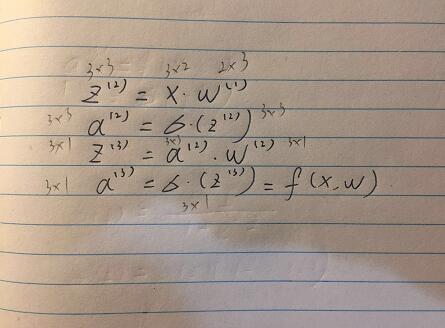 3×3 3×2 2×3
z⁽²⁾ = X · W⁽¹⁾
3×3 a⁽²⁾ = σ·(z⁽²⁾) 3×3
3×1 z⁽³⁾ = a⁽²⁾ · W⁽²⁾ 3×1
3×3
3×1 a⁽³⁾ = σ·(z⁽³⁾) = f(X, W)
3×1